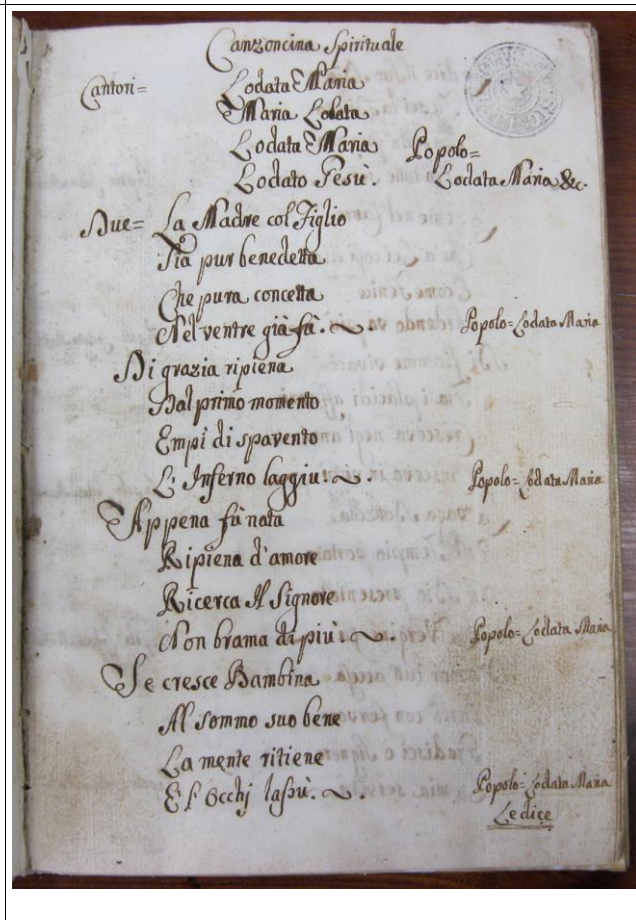 Canzoncina Spirituale
Cantori= Lodata Maria
Maria Lodata
Lodata Maria Popolo=
Lodato Gesù. Lodata Maria &c.
Due= La Madre col Figlio
Sia pur benedetta
Che pura concetta
Nel ventre già fù. Popolo= Lodata Maria
Di grazia ripiena
Dal primo momento
Empì di spavento
L'Inferno laggiu. Popolo= Lodata Maria
Appena fù nata
Ripiena d'amore
Ricerca Il Signore
Non brama di più. Popolo= Lodata Maria
Se cresce Bambina
Al sommo suo bene
La mente ritiene
E l' Occhj lassù. Popolo= Lodata Maria
Le dice